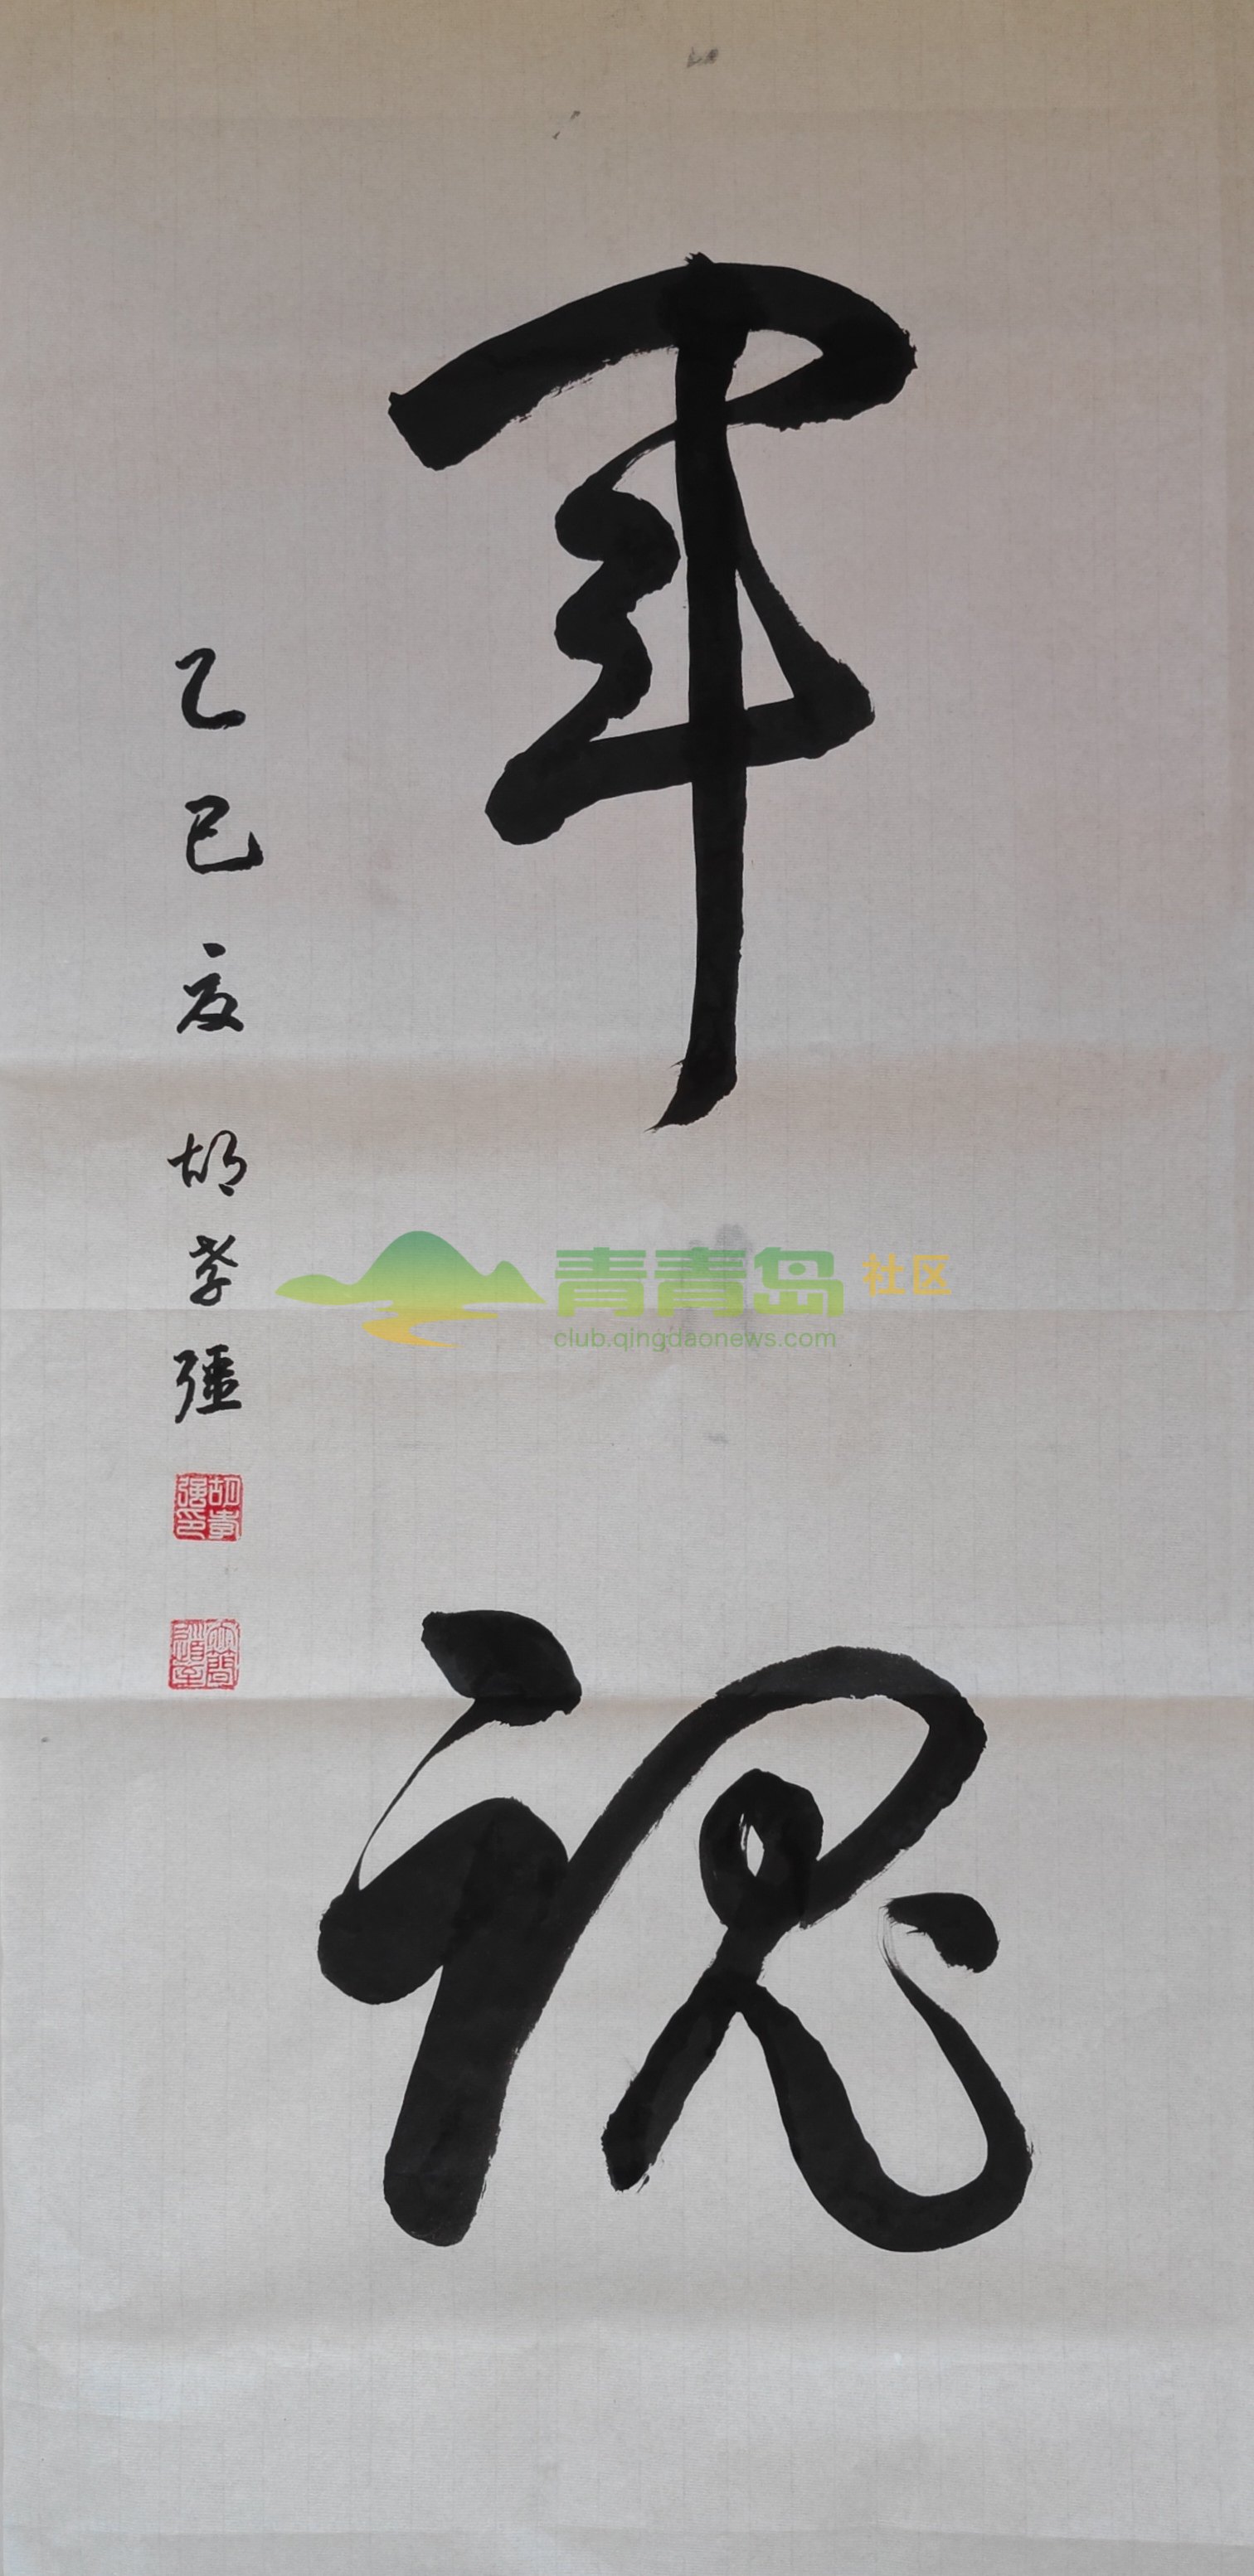 军魂
乙巳夏 胡孝强
胡孝强印
青青岛社区
club.qingdaonews.com